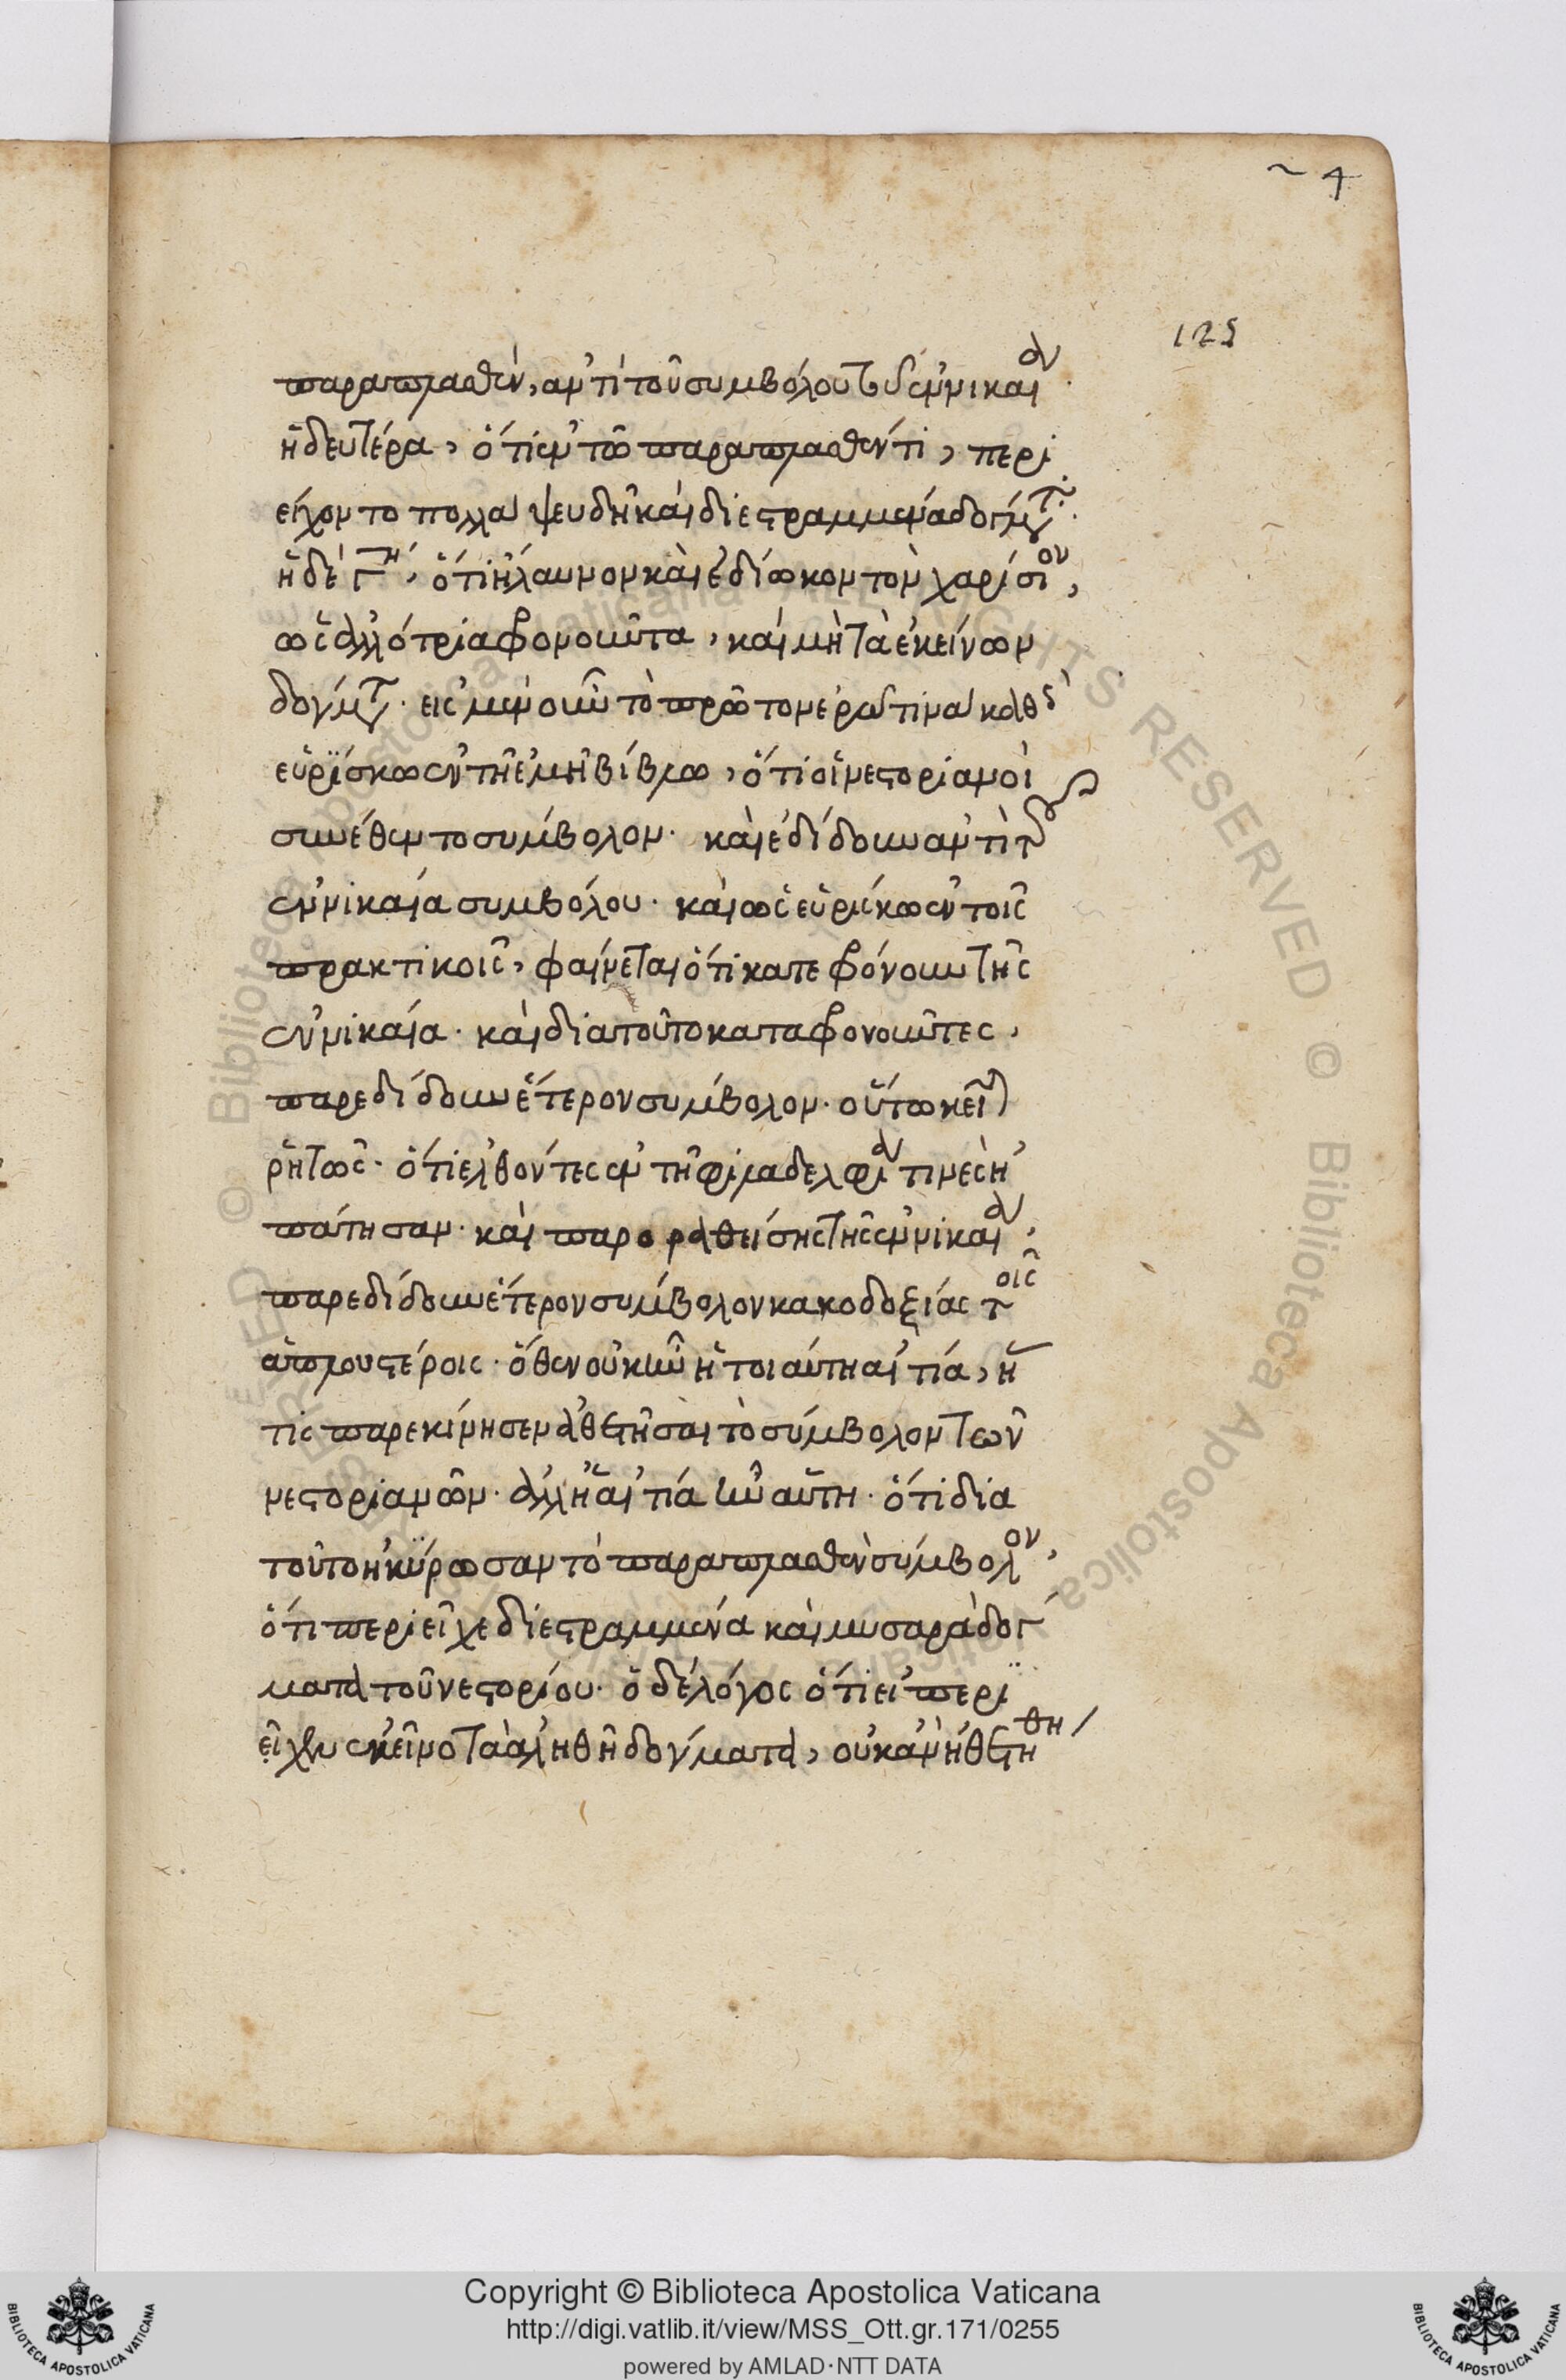 ~ 4
125
παραπλασθὲν, ἀντὶ τοῦ συμβόλου τοῦ ἐν νικαία.
ἡ δευτέρα, ὅτι ἐν τῶ παραπλασθέντι, περι
είχοντο πολλὰ ψευδῆ καὶ διεστραμμένα δόγματα.
ἡ δὲ γ΄η, ὅτι ἤλαυνον καὶ ἐδίωκον τὸν χαρίσιον,
ὡς ἀλλότρια φρονοῦντα, καὶ μὴ τὰ ἐκείνων
δόγματα. εἰς μὲν οὖν τὸ πρῶτον ἐρωτῶνται καθὸ
εὑρίσκω ἐν τῆ ἐμῆ βίβλω, ὅτι οἱ νεστοριανοὶ
συνέθεντο σύμβολον. καὶ ἐδίδουν ἀντὶ τοῦ
ἐν νικαία συμβόλου. καὶ ὡς εὑρίσκω ἐν τοῖς
πρακτικοῖς, φαίνεται ὅτι κατεφρόνουν τῆς
ἐν νικαία. καὶ διατοῦτο καταφρονοῦντες,
παρεδίδουν ἕτερον σύμβολον. οὕτω κεῖται
ῥητῶς. ὅτι ἐλθόντες ἐν τῆ φιλαδελφία τινὲς ἠ
πάτησαν. καὶ παροραθείσης τῆς ἐν νικαία,
παρεδίδουν ἕτερον σύμβολον κακοδοξίας τοῖς
ἁπλουστέροις. ὅθεν οὐκ ἦν ἡ τοιαύτη αἰτία, ἥ
τις παρεκίνησεν ἀθετῆσαι τὸ σύμβολον τῶν
νεστοριανῶν. ἀλλ' ἡ αἰτία ἦν αὕτη. ὅτι δια
τοῦτο ἠκύρωσαν τὸ παραπλασθὲν σύμβολον,
ὅτι περιεῖχε διεστραμμένα καὶ μυσαρὰ δόγ
ματα τοῦ νεστορίου. ὁ δὲ λόγος ὅτι εἰ περι
εῖχεν ἐκεῖνο τὰ ἀληθῆ δόγματα, οὐκ ἂν ἠθετήθη
Copyright © Biblioteca Apostolica Vaticana
http://digi.vatlib.it/view/MSS_Ott.gr.171/0255
powered by AMLAD·NTT DATA